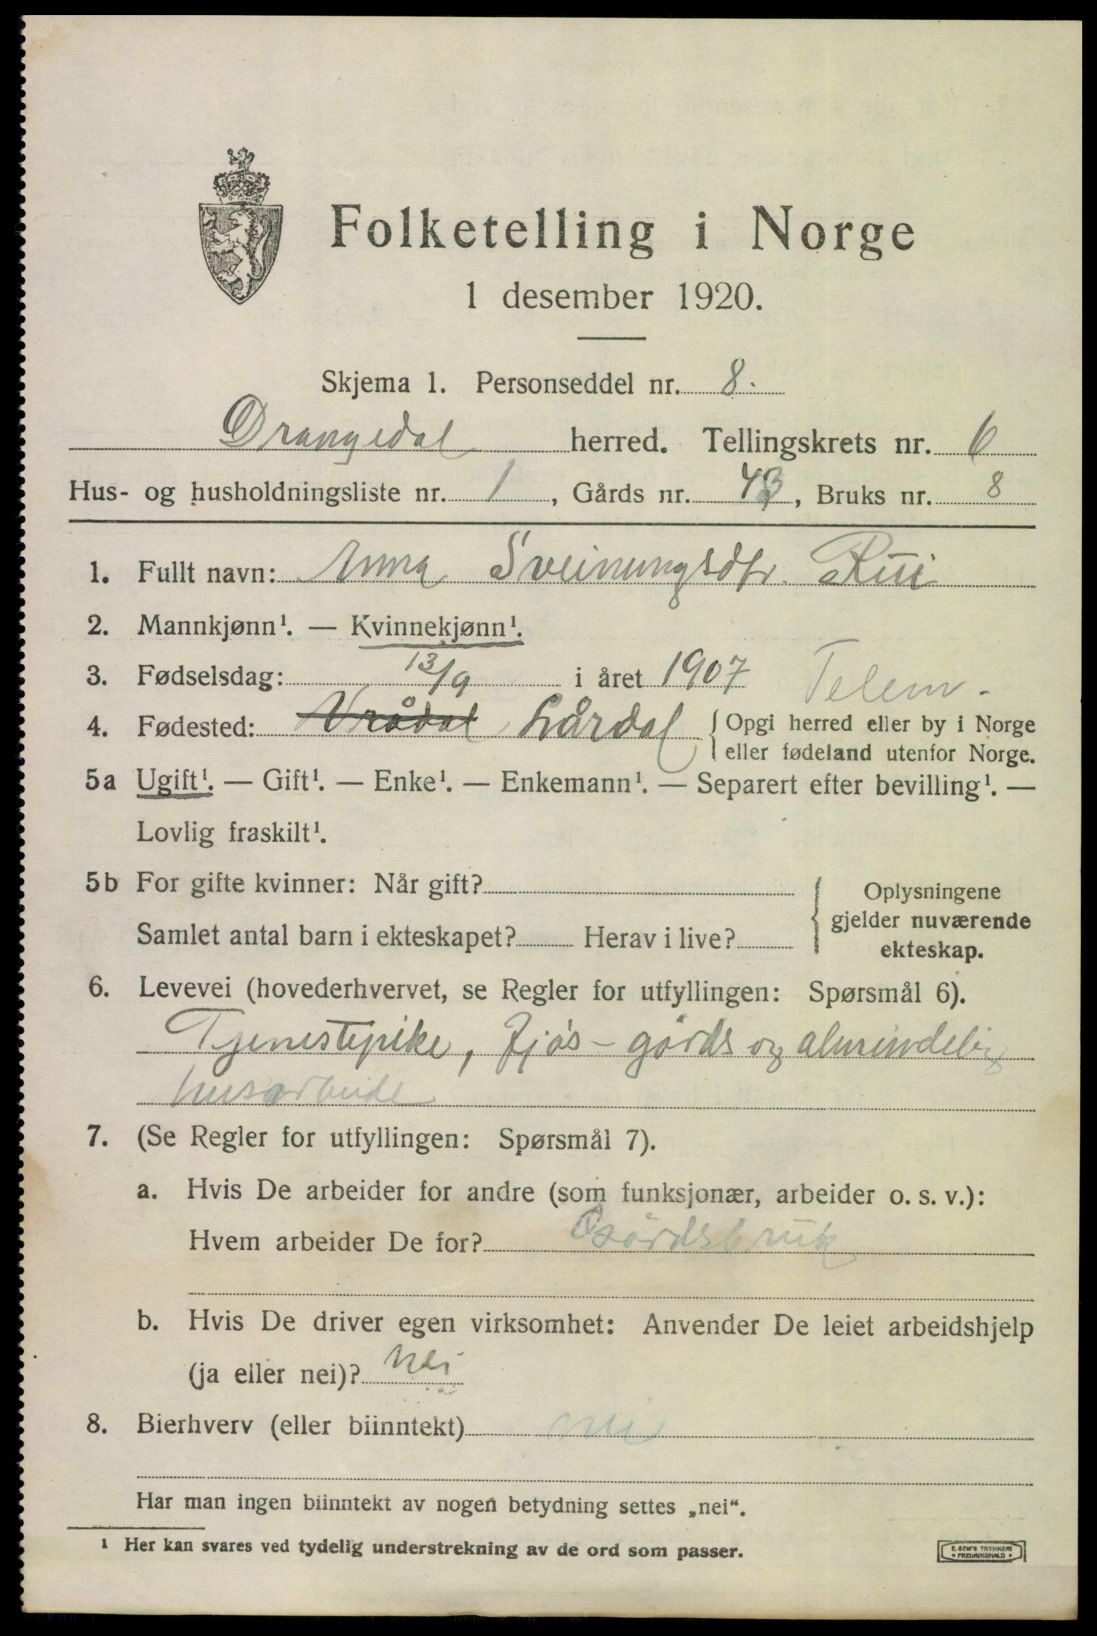 Folketelling i Norge
1 desember 1920.
Skjema 1. Personseddel nr. 8.
Drangedal herred. Tellingskrets nr. 6
Hus- og husholdningsliste nr. 1, Gårds nr. 43, Bruks nr. 8
1. Fullt navn: Anna Sveinungsdtr. Rui
2. Mannkjønn¹. — Kvinnekjønn¹.
3. Fødselsdag: 13/9 i året 1907 Telem-
4. Fødested: Vrådal Lårdal { Opgi herred eller by i Norge
eller fødeland utenfor Norge.
5a Ugift¹. — Gift¹. — Enke¹. — Enkemann¹. — Separert efter bevilling¹. —
Lovlig fraskilt¹.
5b For gifte kvinner: Når gift?
Samlet antal barn i ekteskapet? Herav i live?
{ Oplysningene
gjelder nuværende
ekteskap.
6. Levevei (hovederhvervet, se Regler for utfyllingen: Spørsmål 6).
Tjenestepike, fjøs- gårds og almindelig
husarbeide
7. (Se Regler for utfyllingen: Spørsmål 7).
a. Hvis De arbeider for andre (som funksjonær, arbeider o. s. v.):
Hvem arbeider De for? Gårdsbruk
b. Hvis De driver egen virksomhet: Anvender De leiet arbeidshjelp
(ja eller nei)? Nei
8. Bierhverv (eller biinntekt) nei
Har man ingen biinntekt av nogen betydning settes „nei“.
¹ Her kan svares ved tydelig understrekning av de ord som passer.
E. SEM'S TRYKKERI
• FREDRIKSHALD •